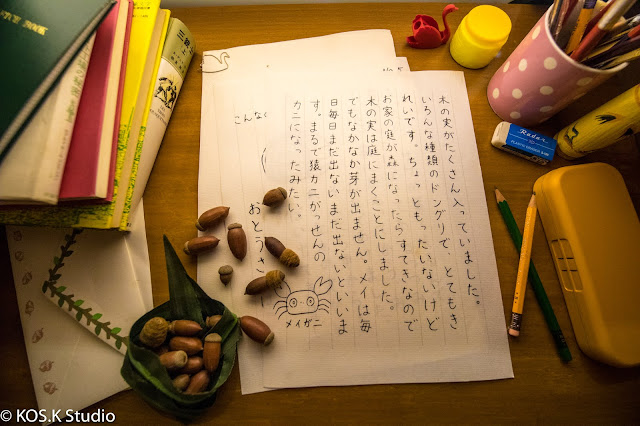 木の実がたくさん入っていました。
いろんな種類のドングリで、とてもき
れいです。ちょっともったいないけど
お家の庭が森になったらすてきなので
木の実は庭にまくことにしました。
でもなかなか芽が出ません。メイは毎
日毎日まだ出ないまだ出ないといいま
す。まるで猿カニがっせんの
カニになったみたい。
メイガニ
おとうさ
こんな
BOOK
Radar
© KOS.K Studio